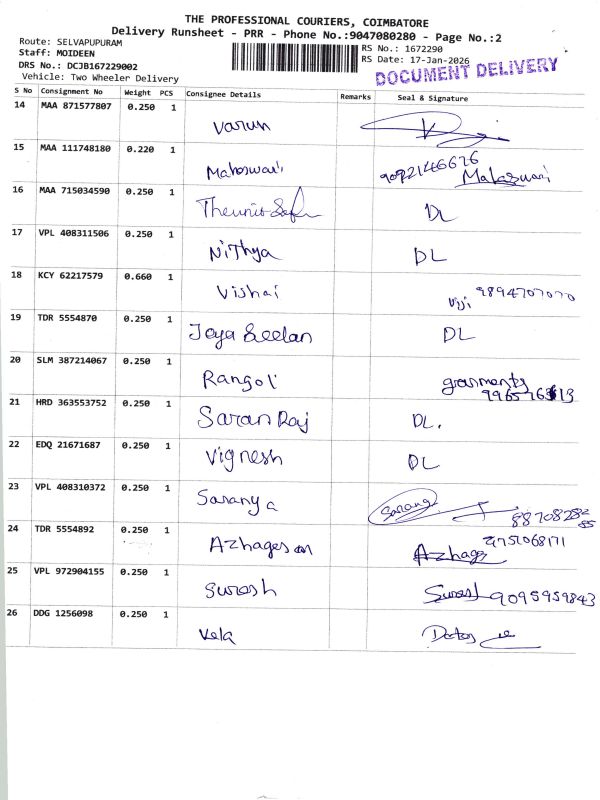 THE PROFESSIONAL COURIERS, COIMBATORE
Delivery Runsheet - PRR - Phone No.:9047080280 - Page No.:2
Route: SELVAPUPURAM
Staff: MOIDEEN
DRS No.: DCJB167229002
Vehicle: Two Wheeler Delivery
RS No.: 1672290
RS Date: 17-Jan-2026
DOCUMENT DELIVERY
S No Consignment No Weight PCS Consignee Details Remarks Seal & Signature
14 MAA 871577807 0.250 1 Varun
15 MAA 111748180 0.220 1 Maheswari 9092146676 Maheswari
16 MAA 715034590 0.250 1 DL
17 VPL 408311506 0.250 1 Nithya DL
18 KCY 62217579 0.660 1 Vishal Viji 9894707070
19 TDR 5554870 0.250 1 Jeya Seelan DL
20 SLM 387214067 0.250 1 Rangoli garments
21 HRD 363553752 0.250 1 Saran Raj DL.
22 EDQ 21671687 0.250 1 Vignesh DL
23 VPL 408310372 0.250 1 Saranya Saranya
24 TDR 5554892 0.250 1 Azhagesan 9751068171
25 VPL 972904155 0.250 1 Suresh Suresh 9095959843
26 DDG 1256098 0.250 1 Vela